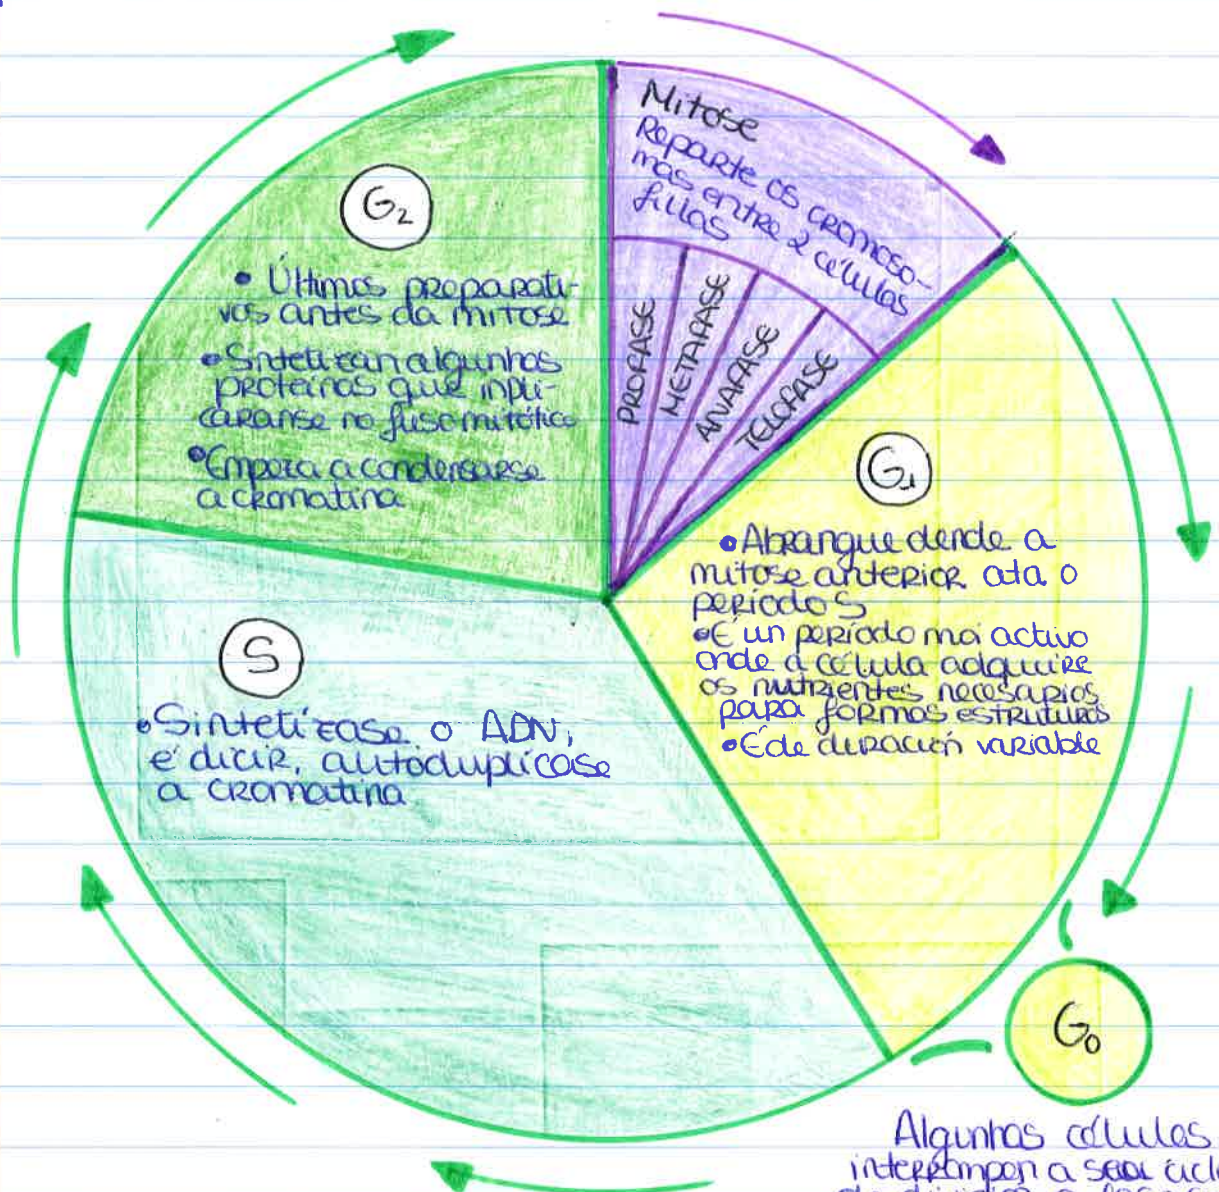 Mitose
Reparte os cromoso-
mas entre 2 células
fillas
PROFASE
METAFASE
ANAFASE
TELOFASE
G₂
• Últimos preparati-
vos antes da mitose
• Sintetizan algunhas
proteínas que inpli-
caranse no fuso mitótico
• Empeza a condensarse
a cromatina
G₁
• Abrangue dende a
mitose anterior ata o
período S
• É un período moi activo
onde a célula adquire
os nutrientes necesarios
para formas estruturas
• É de duración variable
S
• Sintetízase o ADN,
é dicir, autoduplícase
a cromatina
G₀
Algunhas células
interrompen a seu